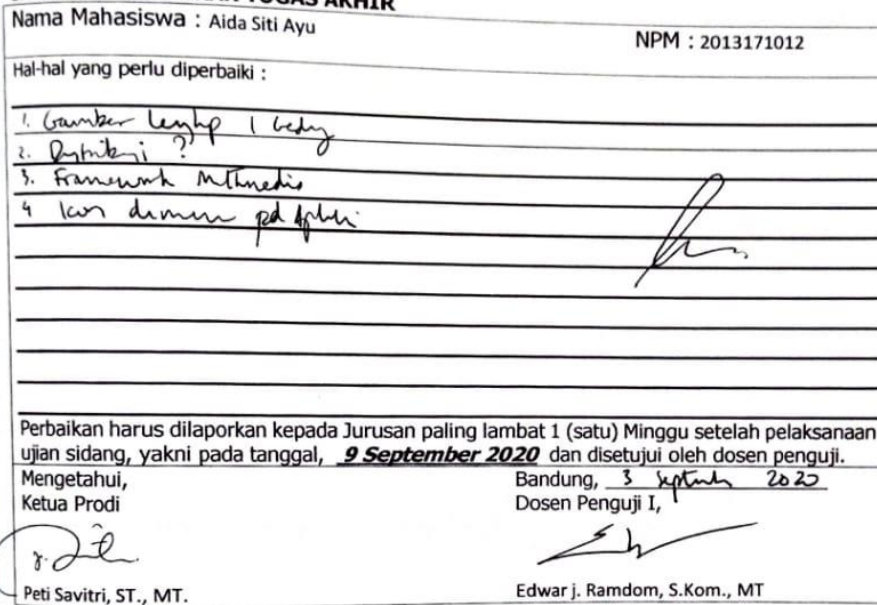 TUGAS AKHIR
Nama Mahasiswa : Aida Siti Ayu
NPM : 2013171012
Hal-hal yang perlu diperbaiki :
1. Gambar lengkap 1
2. Distribusi ?
3. Framework Multimedia
4 Icon pd Aplikasi
Perbaikan harus dilaporkan kepada Jurusan paling lambat 1 (satu) Minggu setelah pelaksanaan
ujian sidang, yakni pada tanggal, 9 September 2020 dan disetujui oleh dosen penguji.
Mengetahui,
Ketua Prodi
Bandung, 3 September 2020
Dosen Penguji I,
Peti Savitri, ST., MT.
Edwar j. Ramdom, S.Kom., MT